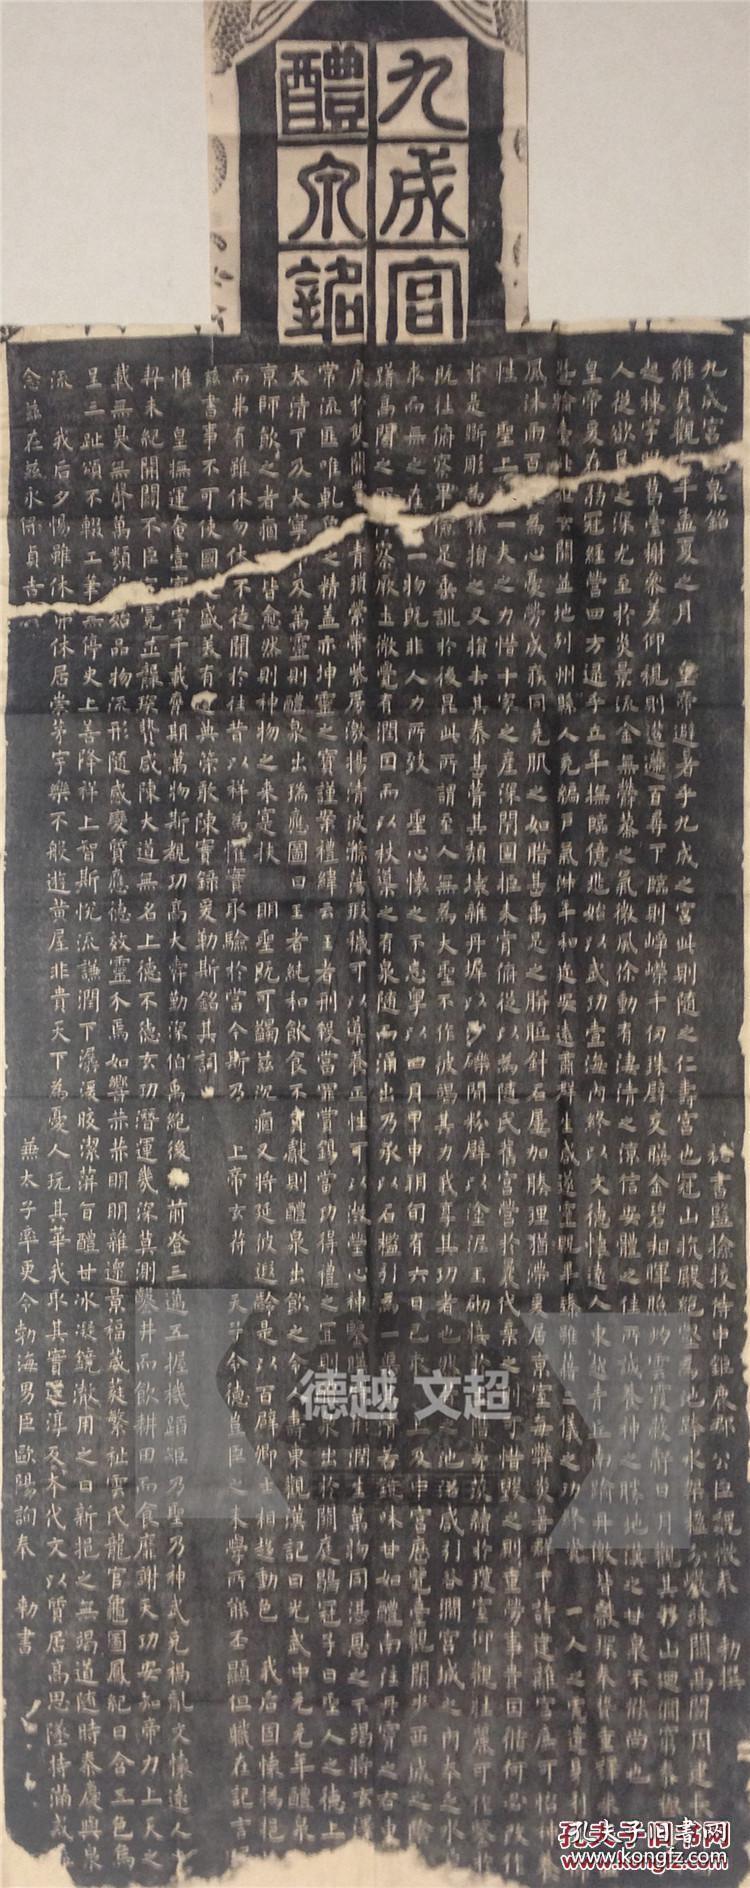 九成宮
醴泉銘
九成宮泉銘 秘書監檢校侍中鉅鹿郡公臣魏徵奉 勅撰
維貞觀年孟夏之月 皇帝避暑乎九成之宮此則隨之仁壽宮也冠山抗殿絕壑為池跨水架楹分巖竦闕高閣周建
起棟宇葛臺榭參差仰視則迢遰百尋下臨則崢嶸千仞珠璧交映金碧相暉照灼雲霞蔽虧日月觀其移山迴澗窮泰
人從欲良足深尤至於炎景流金無鬱蒸之氣微風徐動有淒清之涼信安體之佳所誠養神之勝地漢之甘泉不能尚也
皇帝爰在弱冠經營四方逮乎立年撫臨億兆始以武功壹海內終以文德懷遠人東越青丘南踰丹徼皆獻琛奉贄重譯來
暨輪臺北拒玄闕並地列州縣人充編戶氣淑年和迩安遠肅群生咸遂靈貺畢臻雖藉二儀之功終資 一人之慮遺身利
風沐雨百為心憂勞成疾同堯肌之如腊甚禹足之胼胝針石屢加腠理猶滯爰居京室每弊炎暑群下請建離宮庶可怡
性 聖上一夫之力惜十家之產深閉固拒未肯俯從以為隨氏舊宮營於曩代棄之則可惜毀之則重勞事貴因循何必改作
於是斲彫為樸損之又損去其泰甚葺其頹壞雜丹墀以沙礫間粉壁以塗泥玉砌接於茅茨續於瓊室仰觀壯麗可作鑒於
既往俯察卑儉足垂訓於後昆此所謂至人無為大聖不作彼竭其力我享其功者也之池沼咸引谷澗宮城之內本乏水
求而無之在一物既非人力所致 聖心懷之不忘粵以四月甲申朔旬有六日己 上及中宮歷覽臺觀閑步西城之
躊高閣之察厥土微覺有潤因而以杖導之有泉隨而涌出乃承以石檻引為一渠其清若味甘如醴南注丹霄之右東
度於雙闕青瑣縈帶紫房激揚清波滌蕩瑕穢可以導養正性可以澂瑩心神鑒形潤生萬物同湛恩之不竭將玄
常流匪唯乾之精蓋亦坤靈之寶謹案禮緯云王者刑殺當罪賞錫當功得禮之宜泉出於闕庭鶡冠子曰聖人之德上
太清下及太寧及萬靈則醴泉出瑞應圖曰王者純和飲食不貢獻則醴泉出飲之令人壽東觀漢記曰光武中元元年醴泉
京師飲之者痼皆愈然則神物之來寔扶 明聖既可蠲茲沉痼又將延彼遐齡是以百辟卿士相趨動色 我后固懷撝挹
而弗有雖休勿休不徒聞於往昔以祥為懼實取驗於當今斯乃 上帝玄符 天子令德豈臣之末學所能丕顯但職在記言
茲書事不可使國之盛美有遺典策敢陳實錄爰勒斯銘其詞
惟 皇撫運奄壹寰宇千載膺期萬物斯覩功高大舜勤深伯禹絕後前登三邁五握機蹈矩乃聖乃神武克禍亂文懷遠人
契未紀開闢不臣冠冕並襲琛贄咸陳大道無名上德不德玄功潛運幾深莫測鑿井而飲耕田而食靡謝天功安知帝力上天之
載無臭無聲萬類始品物流形隨感變質應德效靈介焉如響赫赫明明雜遝景福葳蕤繁祉雲氏龍官龜圖鳳紀日含五色烏
呈三趾頌不輟工筆無停史上善降祥上智斯悅流謙潤下潺湲皎潔蓱旨醴甘冰凝鏡澈用之日新挹之無竭道隨時泰慶與泉
流 我后夕惕雖休弗休居崇茅宇樂不般遊黃屋非貴天下為憂人玩其華我取其實還淳反本代文以質居高思墜持滿戒
念茲在茲永保貞吉 兼太子率更令勃海男臣歐陽詢奉 勅書
德越文超
孔夫子旧书网
www.kongfz.com